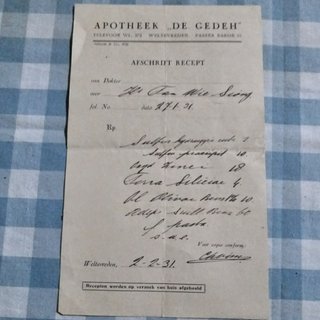 APOTHEEK „DE GEDEH"
TELEFOON WL. 372 WELTEVREDEN PASSER BAROE 21
AFSCHRIFT RECEPT
van Dokter
voor Hr Tan Wie Siong
fol. No. datum 27.1.31
Rp.
Sulfur
Sulfur praecipit 10
oxyd Zinci 18
Terra Silicea 4
ol Olivar 10
adip Suill
f pasta
s.u.e.
Voor copie conform,
Weltevreden, 2-2-31.
Recepten worden op verzoek van huis afgehaald